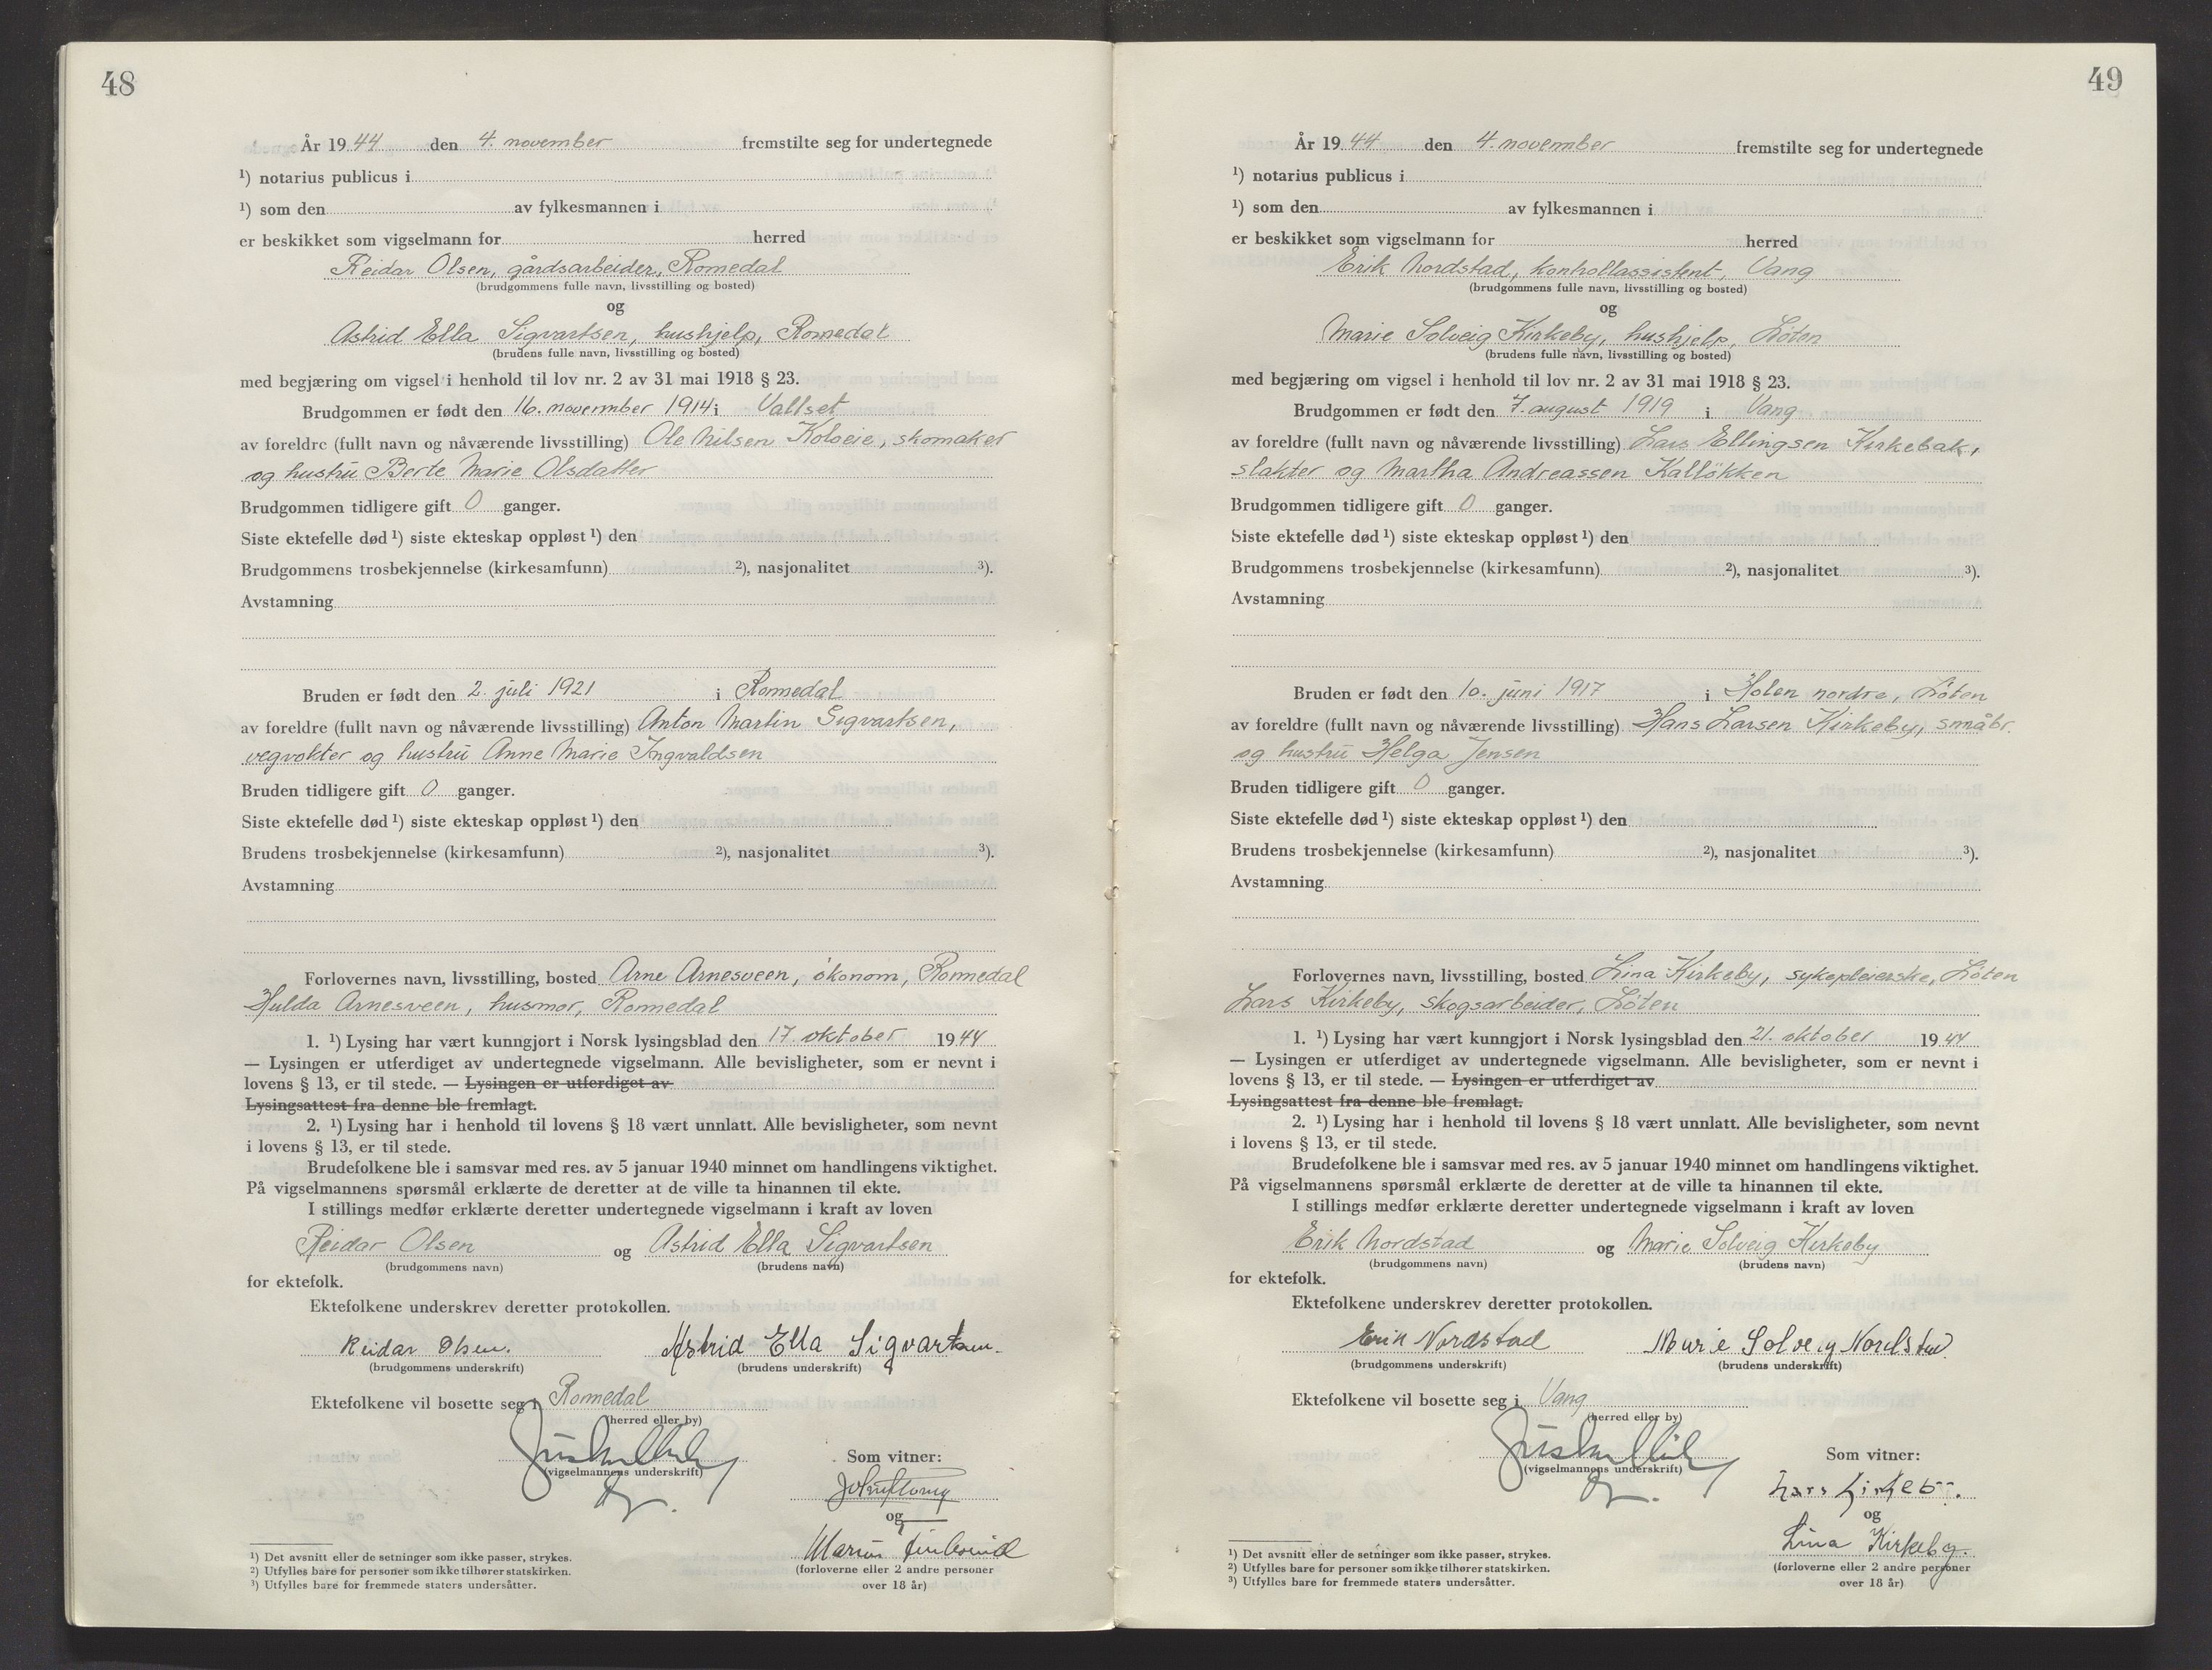 48
År 1944 den 4. november fremstilte seg for undertegnede
¹) notarius publicus i
¹) som den av fylkesmannen i
er beskikket som vigselmann for herred
Reidar Olsen, gårdsarbeider, Romedal
(brudgommens fulle navn, livsstilling og bosted)
og
Astrid Ella Sigvartsen, hushjelp, Romedal
(brudens fulle navn, livsstilling og bosted)
med begjæring om vigsel i henhold til lov nr. 2 av 31 mai 1918 § 23.
Brudgommen er født den 16. november 1914 i Vallset
av foreldre (fullt navn og nåværende livsstilling) Ole Nilsen Koloeie, skomaker
og hustru Berte Marie Olsdatter
Brudgommen tidligere gift 0 ganger.
Siste ektefelle død ¹) siste ekteskap oppløst ¹) den
Brudgommens trosbekjennelse (kirkesamfunn) ²), nasjonalitet ³).
Avstamning
Bruden er født den 2. juli 1921 i Romedal
av foreldre (fullt navn og nåværende livsstilling) Anton Martin Sigvartsen,
vegvokter og hustru Anne Marie Ingvaldsen
Bruden tidligere gift 0 ganger.
Siste ektefelle død ¹) siste ekteskap oppløst ¹) den
Brudens trosbekjennelse (kirkesamfunn) ²), nasjonalitet ³).
Avstamning
Forlovernes navn, livsstilling, bosted Arne Arnesveen, økonom, Romedal
Hulda Arnesveen, husmor, Romedal
1. ¹) Lysing har vært kunngjort i Norsk lysingsblad den 17. oktober 1944
— Lysingen er utferdiget av undertegnede vigselmann. Alle bevisligheter, som er nevnt i
lovens § 13, er til stede. — Lysingen er utferdiget av
Lysingsattest fra denne ble fremlagt.
2. ¹) Lysing har i henhold til lovens § 18 vært unnlatt. Alle bevisligheter, som nevnt
i lovens § 13, er til stede.
Brudefolkene ble i samsvar med res. av 5 januar 1940 minnet om handlingens viktighet.
På vigselmannens spørsmål erklærte de deretter at de ville ta hinannen til ekte.
I stillings medfør erklærte deretter undertegnede vigselmann i kraft av loven
Reidar Olsen og Astrid Ella Sigvartsen
(brudgommens navn) (brudens navn)
for ektefolk.
Ektefolkene underskrev deretter protokollen.
Reidar Olsen. Astrid Ella Sigvartsen.
(brudgommens underskrift) (brudens underskrift)
Ektefolkene vil bosette seg i Romedal
(herred eller by)
(vigselmannens underskrift)
Som vitner:
og
Marius
(forloverne eller 2 andre personer
over 18 år)
¹) Det avsnitt eller de setninger som ikke passer, strykes.
²) Utfylles bare for personer som ikke tilhører statskirken.
³) Utfylles bare for fremmede staters undersåtter.
49
År 1944 den 4. november fremstilte seg for undertegnede
¹) notarius publicus i
¹) som den av fylkesmannen i
er beskikket som vigselmann for herred
Erik Nordstad, kontrollassistent, Vang
(brudgommens fulle navn, livsstilling og bosted)
og
Marie Solveig Kirkeby, hushjelp, Löten
(brudens fulle navn, livsstilling og bosted)
med begjæring om vigsel i henhold til lov nr. 2 av 31 mai 1918 § 23.
Brudgommen er født den 7. august 1919 i Vang
av foreldre (fullt navn og nåværende livsstilling) Lars Ellingsen Kirkebak,
slakter og Martha Andreassen Kallökken
Brudgommen tidligere gift 0 ganger.
Siste ektefelle død ¹) siste ekteskap oppløst ¹) den
Brudgommens trosbekjennelse (kirkesamfunn) ²), nasjonalitet ³).
Avstamning
Bruden er født den 10. juni 1917 i Holen nordre, Löten
av foreldre (fullt navn og nåværende livsstilling) Hans Larsen Kirkeby, småbr.
og hustru Helga Jensen
Bruden tidligere gift 0 ganger.
Siste ektefelle død ¹) siste ekteskap oppløst ¹) den
Brudens trosbekjennelse (kirkesamfunn) ²), nasjonalitet ³).
Avstamning
Forlovernes navn, livsstilling, bosted Lina Kirkeby, sykepleierske, Löten
Lars Kirkeby, skogsarbeider, Löten
1. ¹) Lysing har vært kunngjort i Norsk lysingsblad den 21. oktober 1944
— Lysingen er utferdiget av undertegnede vigselmann. Alle bevisligheter, som er nevnt i
lovens § 13, er til stede. — Lysingen er utferdiget av
Lysingsattest fra denne ble fremlagt.
2. ¹) Lysing har i henhold til lovens § 18 vært unnlatt. Alle bevisligheter, som nevnt
i lovens § 13, er til stede.
Brudefolkene ble i samsvar med res. av 5 januar 1940 minnet om handlingens viktighet.
På vigselmannens spørsmål erklærte de deretter at de ville ta hinannen til ekte.
I stillings medfør erklærte deretter undertegnede vigselmann i kraft av loven
Erik Nordstad og Marie Solveig Kirkeby
(brudgommens navn) (brudens navn)
for ektefolk.
Ektefolkene underskrev deretter protokollen.
Erik Nordstad Marie Solveig Nordstad.
(brudgommens underskrift) (brudens underskrift)
Ektefolkene vil bosette seg i Vang
(herred eller by)
(vigselmannens underskrift)
Som vitner:
Lars Kirkeby.
og
Lina Kirkeby.
(forloverne eller 2 andre personer
over 18 år)
¹) Det avsnitt eller de setninger som ikke passer, strykes.
²) Utfylles bare for personer som ikke tilhører statskirken.
³) Utfylles bare for fremmede staters undersåtter.